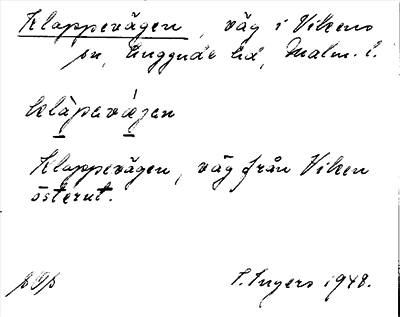 Klappevägen, väg i Vikens
sn, Luggude hd, Malm. l.
klàpəvǽgen
Klappevägen, väg från Viken
österut.
I. Ingers 1948.